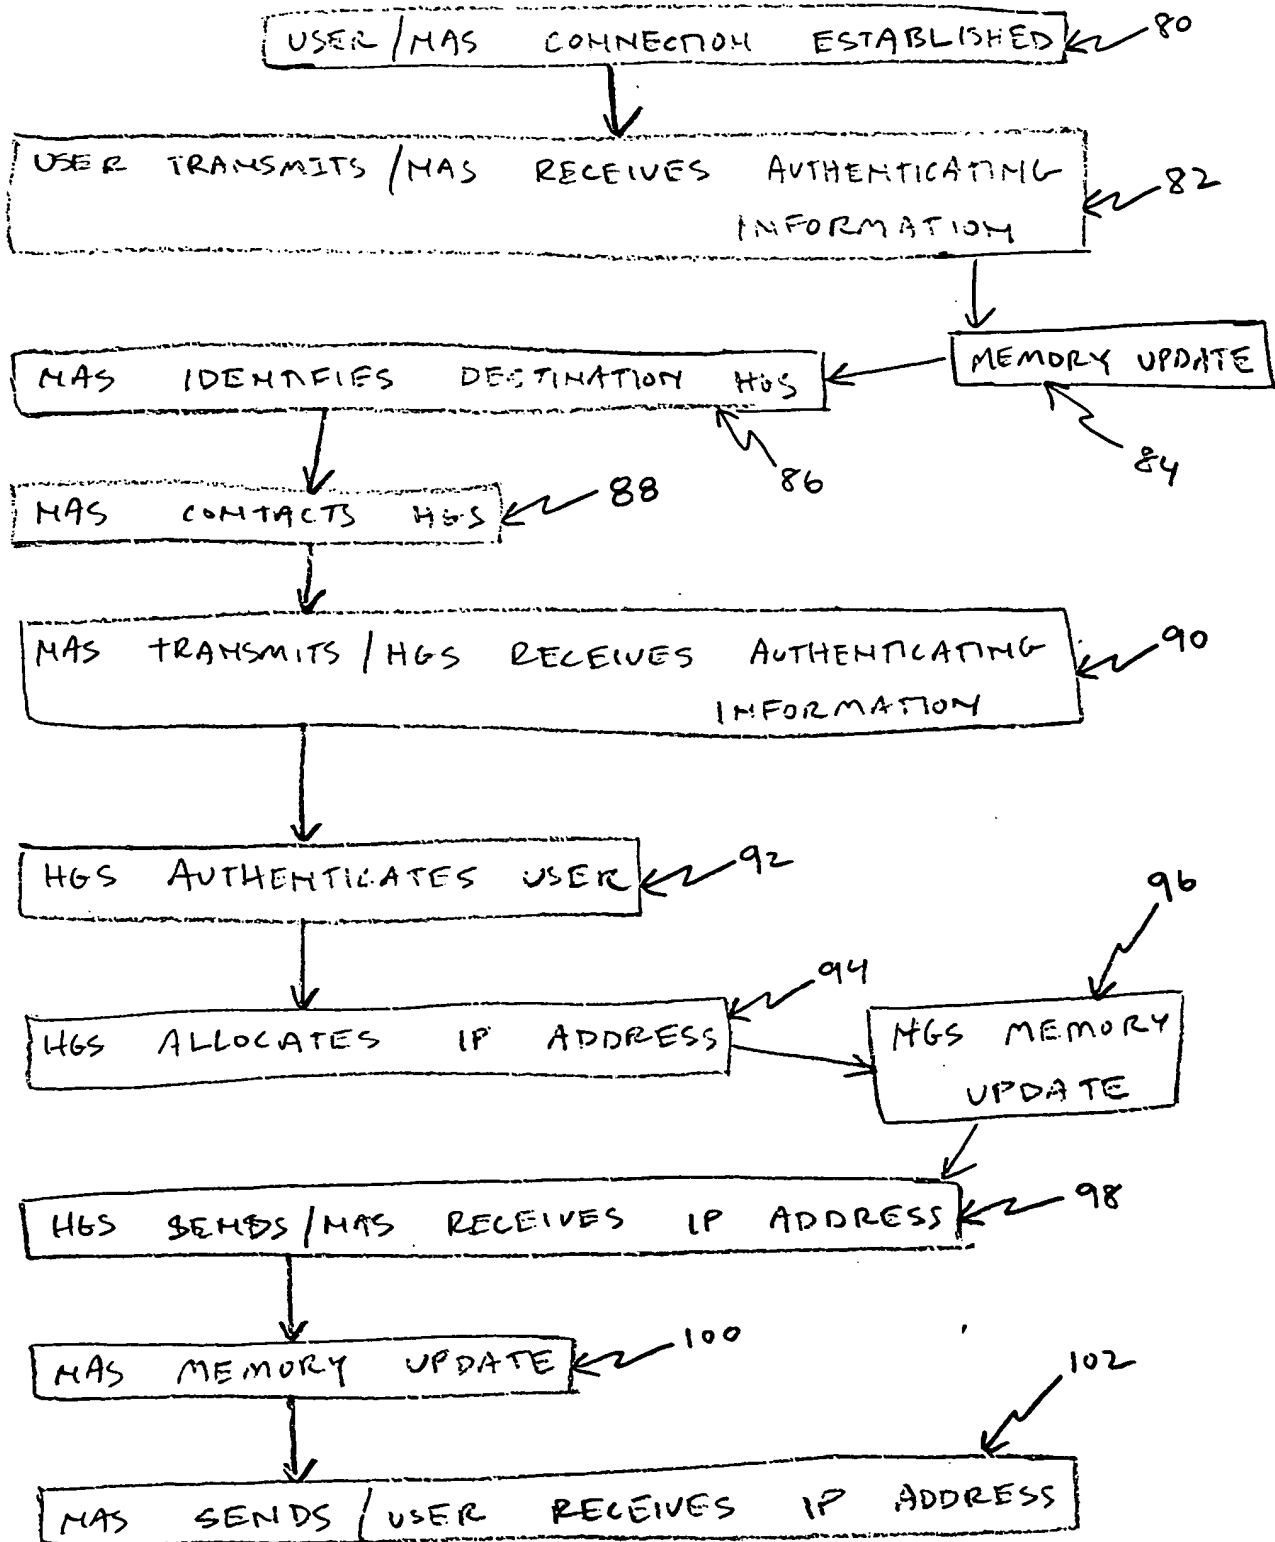 USER/NAS CONNECTION ESTABLISHED
80
USER TRANSMITS/NAS RECEIVES AUTHENTICATING
INFORMATION
82
MEMORY UPDATE
84
NAS IDENTIFIES DESTINATION HGS
86
NAS CONTACTS HGS
88
NAS TRANSMITS/HGS RECEIVES AUTHENTICATING
INFORMATION
90
HGS AUTHENTICATES USER
92
HGS ALLOCATES IP ADDRESS
94
HGS MEMORY
UPDATE
96
HGS SENDS/NAS RECEIVES IP ADDRESS
98
NAS MEMORY UPDATE
100
NAS SENDS/USER RECEIVES IP ADDRESS
102